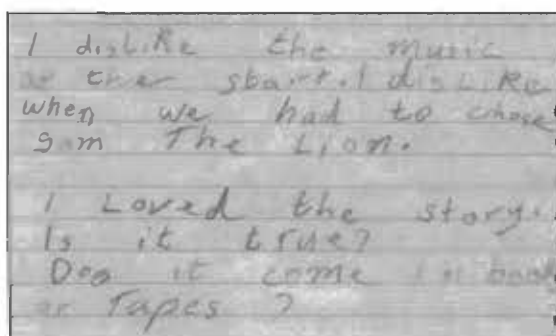 I disLiRe the music
at ther sbart. I disLiRe
when we had to chose
Sam The Lion.
I Loved the story.
Is it true?
Doo it come in book
or Tapes ?